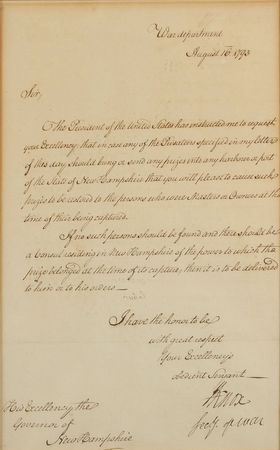 War department
August 16th 1793
Sir,
The President of the United States has instructed me to request
your Excellency, that in case any of the Privateers specified in my letter
of this day should bring or send any prizes into any harbour or port
of the State of New Hampshire that you will please to cause such
prizes to be restored to the persons who were Masters or Owners at the
time of their being captured.
If no such persons should be found and there should be
a Consul residing in New Hampshire of the power to which the
prize belonged at the time of its capture, then it is to be delivered
to him or to his orders —
I have the honor to be
with great respect
Your Excellency's
obedient Servant
HKnox
Secy of War
His Excellency the
Governor of
New Hampshire